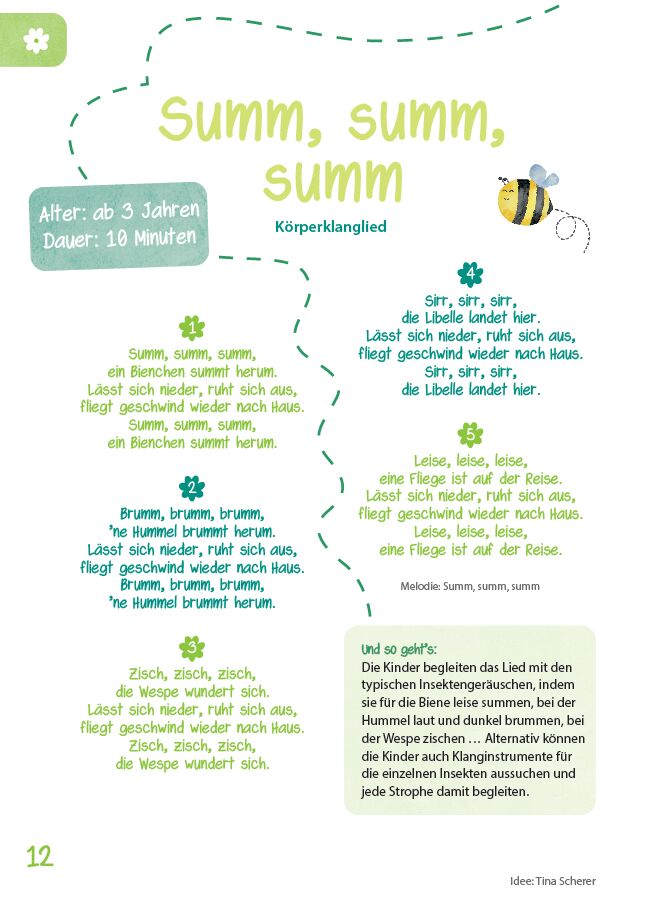 Summ, summ,
summ
Alter: ab 3 Jahren
Dauer: 10 Minuten
Körperklanglied
1
Summ, summ, summ,
ein Bienchen summt herum.
Lässt sich nieder, ruht sich aus,
fliegt geschwind wieder nach Haus.
Summ, summ, summ,
ein Bienchen summt herum.
2
Brumm, brumm, brumm,
’ne Hummel brummt herum.
Lässt sich nieder, ruht sich aus,
fliegt geschwind wieder nach Haus.
Brumm, brumm, brumm,
’ne Hummel brummt herum.
3
Zisch, zisch, zisch,
die Wespe wundert sich.
Lässt sich nieder, ruht sich aus,
fliegt geschwind wieder nach Haus.
Zisch, zisch, zisch,
die Wespe wundert sich.
4
Sirr, sirr, sirr,
die Libelle landet hier.
Lässt sich nieder, ruht sich aus,
fliegt geschwind wieder nach Haus.
Sirr, sirr, sirr,
die Libelle landet hier.
5
Leise, leise, leise,
eine Fliege ist auf der Reise.
Lässt sich nieder, ruht sich aus,
fliegt geschwind wieder nach Haus.
Leise, leise, leise,
eine Fliege ist auf der Reise.
Melodie: Summ, summ, summ
Und so geht’s:
Die Kinder begleiten das Lied mit den
typischen Insektengeräuschen, indem
sie für die Biene leise summen, bei der
Hummel laut und dunkel brummen, bei
der Wespe zischen … Alternativ können
die Kinder auch Klanginstrumente für
die einzelnen Insekten aussuchen und
jede Strophe damit begleiten.
12
Idee: Tina Scherer